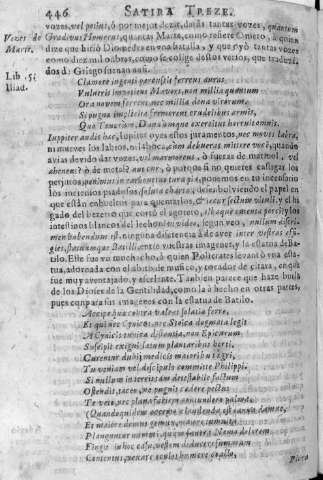 446 SATIRA TREZE.
vozes, vel potius, ò por mejor dezir, dàras tantas vozes, quantum
Vozes de Gradivus Homericus, quantas Marte, como refiere Omero, quien
Marte. dize que hiriò Diomedes en una batalla, y que dyò tantas vozes
como diez mil ombres, como se colige destos versos, que traduzi-
Lib. 5. dos del Griego suenan assi.
Iliad.
Clamor ingenti
Vulneris impatiens Mavors, non millia quantum
Ora novem ferrent, nec millia dena virorum,
Si pugna implicita
Iuppiter audis haec, Iupiter oyes estos juramentos, nec moves labra,
ni mueves los labios, ni hàblas, cum debueras mittere vocẽ, quando
avias de vozes, vel marmoreus, ò fueras de marmol, vel
aheneus? ò de metal? aut cur, ò porque si no quieres castigar los
perjuros, ponemos en tu incensario
los inciensos piadosos soluta charta, desembolviendo el papel en
que están embueltos para quemarlos, & sectum vituli, y el hi-
gado del bezerro que cortò el agorero, albaque omenta porci y los
intestinos blancos del lechon? ut video, segun veo, nullum discri-
men habendum est, ninguna distancia à de aver inter vestras effi-
gies, statuamque Batilli, entre vuestras imagenes, y la estatua de Ba-
tilo. Este fue un muchacho, à quien Policrates levantò una esta-
tua, adornada con el abito de musico, y tocador de citara, en q̃ià
fue muy aventajado, y excelente. Tambien parece que haze burla
de los Dioses de la Gentilidad, como la à hecho en otras partes,
pues compara sus imagenes con la estatua de Batilo.
Accipe quae contra valeat solatia ferre,
Et qui nec Cynicos, nec Stoica dogmata legit
A Cynicis tunica distantia, non Epicurum
Suscipit exigui laetum plantaribus horti.
Curentur dubij medicis maioribus aegri,
Tu venam vel discipulo committe Philippi.
Si nullum in terris tam detestabile factum
Ostendis, taceo, nec pugnis caedere pectus
Te veto, nec plana faciem contundere palma,
(Quandoquidem accepto claudenda est ianua damno,
Et maiore domus gemitu, maiore tumultu
Planguntur nummi, quàm funera. Nemo dolorem
Fingit in hoc casu, vestem diducere summam
Contentus, vexare oculos humore coacto,
Plora